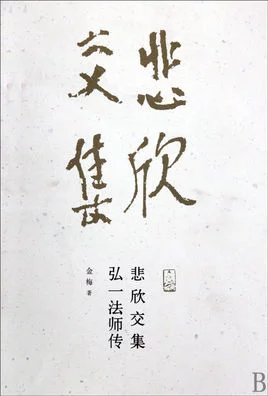 悲欣
交集
悲欣交集
弘一法师传
金梅 著
B